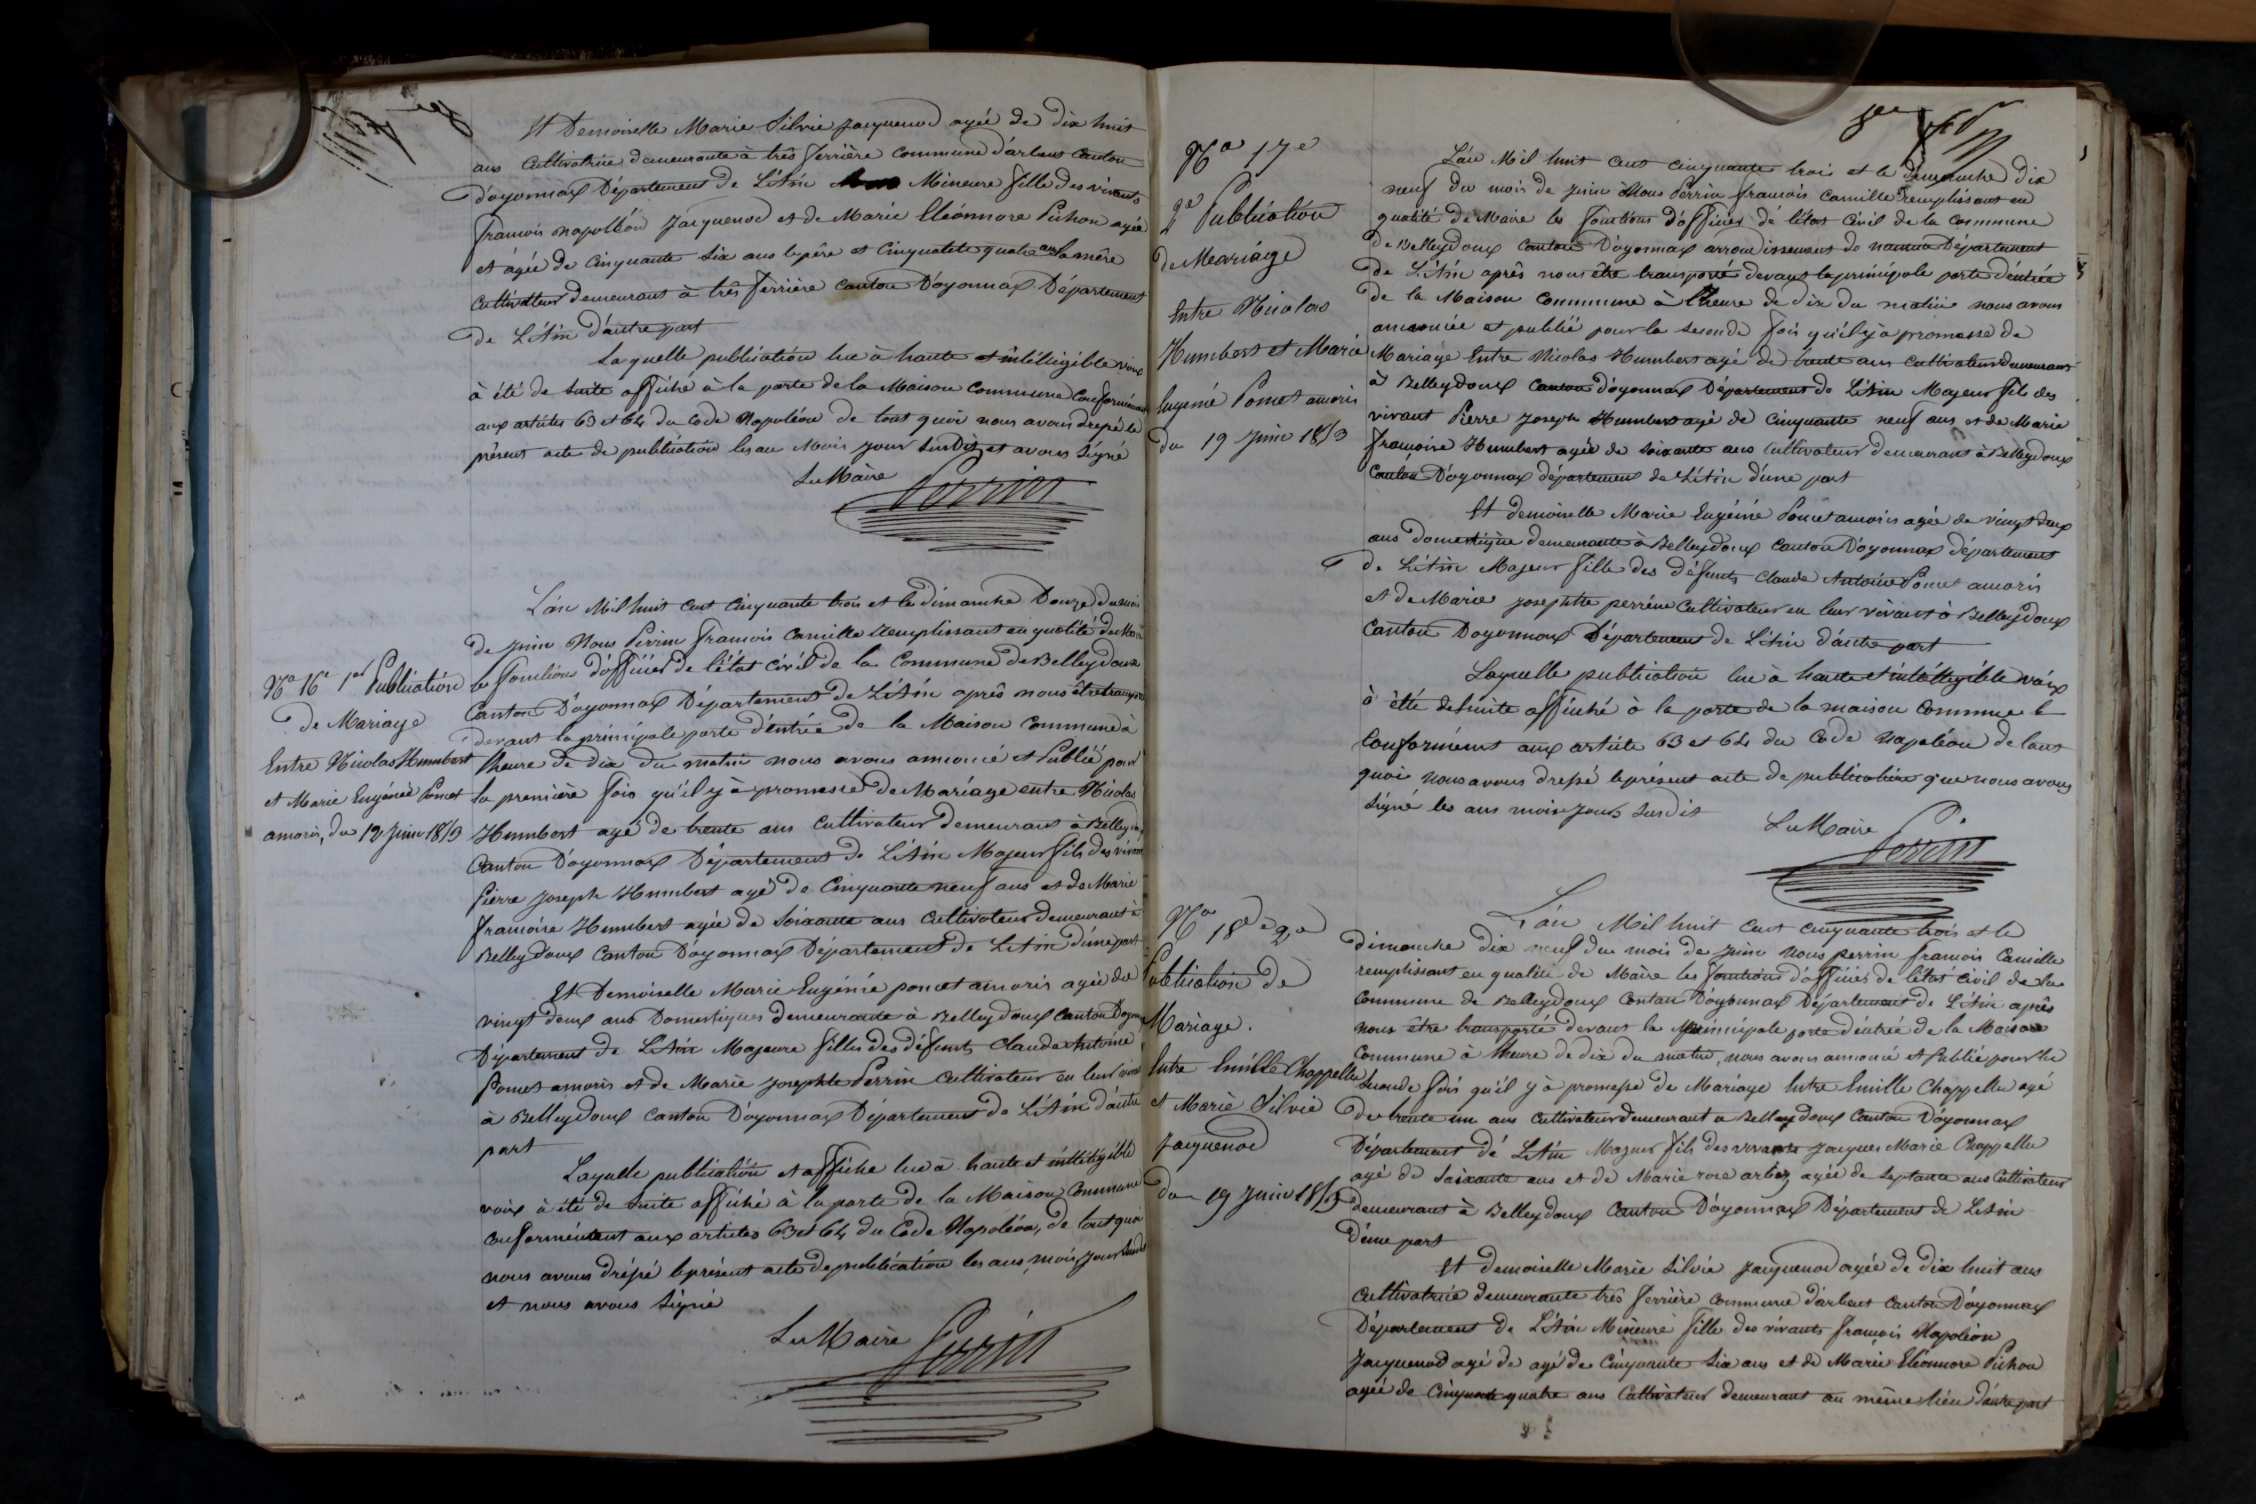 Et Demoiselle Marie Silvie Jacquenod agée de dix huit
ans Cultivatrice demeurante à très ferrière commune d'arbent Canton
d'oyonnax Département de L'Ain Mineure fille des vivants
francois napoléon Jacquenod et de Marie Eléonnore Pichon agée
et agée de Cinquante Six ans le père et Cinquatete quatre ans la mère
Cultivateur demeurant à très ferrière canton D'oyonnax Département
de L'Ain d'autre part
Laquelle publication lue à haute et intélligible voix
à été de Suite affiché à la porte de la Maison Commune Conformément
aux articles 63 et 64 du Code Napoléon de tout quoi nous avons drepé le
présent acte de publication les an Mois jour Susdit et avons Signé
Le Maire Perrin
No 16e 1er Publication
de Mariage
Entre Nicolas Humbert
et Marie Eugénie Poncet
amoris, du 12 Juin 1853
L'an Mil huit cent cinquante trois et le dimanche Douze du mois
de Juin Nous Perrin francois Camille Remplissant en qualité de Maire
les fonctions d'officier de l'état civil de la Commune de Belleydoux
Canton D'oyonnax Département de L'Ain après nous être transporté
devant la principale porte d'entrée de la Maison Commune à
l'heure de dix du matin nous avons annoncé et Publié pour
la première fois qu'il y à promesse de Mariage entre Nicolas
Humbert agé de trente ans Cultivateur demeurant à Belleydoux
Canton D'oyonnax Département de L'Ain Majeur fils des vivant
Pierre Joseph Humbert agé de Cinquante neuf ans et de Marie
francoise Humbert agée de Soixante ans Cultivateur demeurant à
Belleydoux Canton D'oyonnax Département de L'Ain d'une part
Et Demoiselle Marie Eugénie poncet amoris agée de
vingt deux ans Domestiques demeurante à Belleydoux Canton D'oyonnax
Département de L'Ain Majeure filles des défunts Claude Antoine
Poncet amoris et de Marie Josephte Perrin Cultivateur en leur vivant
à Belleydoux Canton D'oyonnax Département de L'Ain d'autre
part
Laquelle publication et affiche lue à haute et intteligible
voix à été de Suite affiché à la porte de la Maison Commune
conformément aux articles 63 et 64 du Code Napoléon, de tout quoi
nous avons drépé le présent acte de publication les ans, mois, jour Susdit
et nous avons Signé
Le Maire Perrin
No 17e
2e Publication
de Mariage
Entre Nicolas
Humbert et Marie
Eugenie Poncet amoris
du 19 Juin 1853
L'an Mil huit cent cinquante trois et le dimanche dix
neuf du mois de Juin Nous Perrin francois Camille Remplissant en
qualité de Maire les fonctions d'officier de l'état Civil de la Commune
de Belleydoux Canton D'oyonnax arrondissement de nantua Département
de L'Ain après nous être transporté devant la principale porte d'entrée
de la Maison Commune à l'heure de dix du matin nous avons
annoncée et publié pour la Seconde fois qu'il y à promesse de
Mariage Entre Nicolas Humbert agé de trente ans Cultivateur demeurant
à Belleydoux Canton d'oyonnax Département de L'Ain Majeur fils des
vivant Pierre Joseph Humbert agé de Cinquante neuf ans et de Marie
françoise Humbert agée de Soixante ans Cultivateur demeurant à Belleydoux
Canton D'oyonnax département de L'Ain d'une part
Et demoiselle Marie Eugénie Poncet amoris agée de vingt deux
ans domestique demeurante à Belleydoux Canton D'oyonnax département
de L'Ain Majeur fille des défunts Claude Antoine Poncet amoris
et de Marie Josephte perrin Cultivateur en leur vivant à Belleydoux
Canton Doyonnax Département de L'Ain d'autre part
Laquelle publication lue à haute et intélligible voix
à été de Suite affiché à la porte de la maison Commune le
Conforméms aux article 63 et 64 du Code Napoléon de tout
quoi nous avons drépé le présent acte de publication que nous avons
Signé les ans mois jours Susdit
Le Maire Perrin
No 18e 2e
Publication de
Mariage.
Entre Emille Chappellu
et Marie Silvie
Jacquenod
du 19 Juin 1853
L'an Mil huit cent cinquante trois et le
dimanche dix neuf du mois de Juin Nous perrin francois Camille
remplissant en qualité de Maire les fonctions d'officier de l'état civil de la
Commune de Belleydoux Contan D'oyonnax Département de L'Ain après
nous être transporté devant la principale porte d'entrée de la Maison
Commune à l'heure de dix du matin, nous avons annoncé et Publié pour la
Seconde fois qu'il y à promepe de Mariage Entre Emille Chappellu agé
de trente un ans Cultivateur demeurant a Belleydoux Canton D'oyonnax
Département de L'Ain Majeur fils des vivants Jacques Marie Chappellu
agé de Soixante ans et de Marie rose arbez agée de Septante ans Cultivateur
demeurant à Belleydoux Canton D'oyonnax Département de L'Ain
d'une part
Et demoiselle Marie Silvie Jacquenod agée de dix huit ans
Cultivatrice demeurante très ferrière commune d'arbent Canton D'oyonnax
Département de L'Ain Mineure fille des vivants francois Napoléon
Jacquenod agé de agé de Cinquante Six ans et de Marie Eléonnore Pichon
agée de Cinquante quatre ans Cultivateur demeurant au même lieu d'autre part